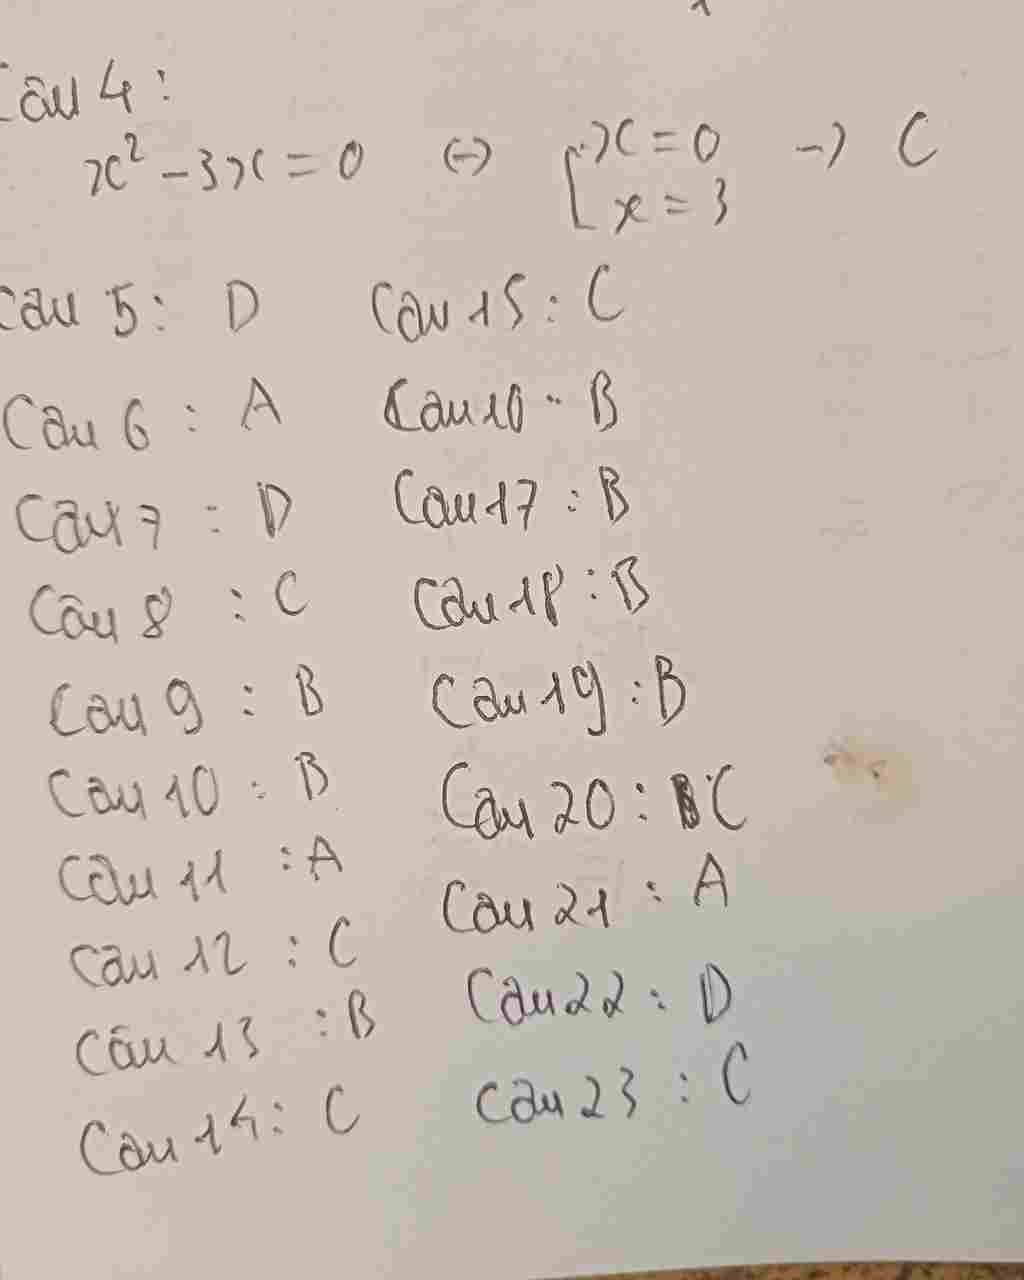 Câu 4:
x² - 3x = 0 ↔ [ x = 0 → C
x = 3
Câu 5: D
Câu 6: A
Câu 7: D
Câu 8: C
Câu 9: B
Câu 10: B
Câu 11: A
Câu 12: C
Câu 13: B
Câu 14: C
Câu 15: C
Câu 16: B
Câu 17: B
Câu 18: B
Câu 19: B
Câu 20: C
Câu 21: A
Câu 22: D
Câu 23: C